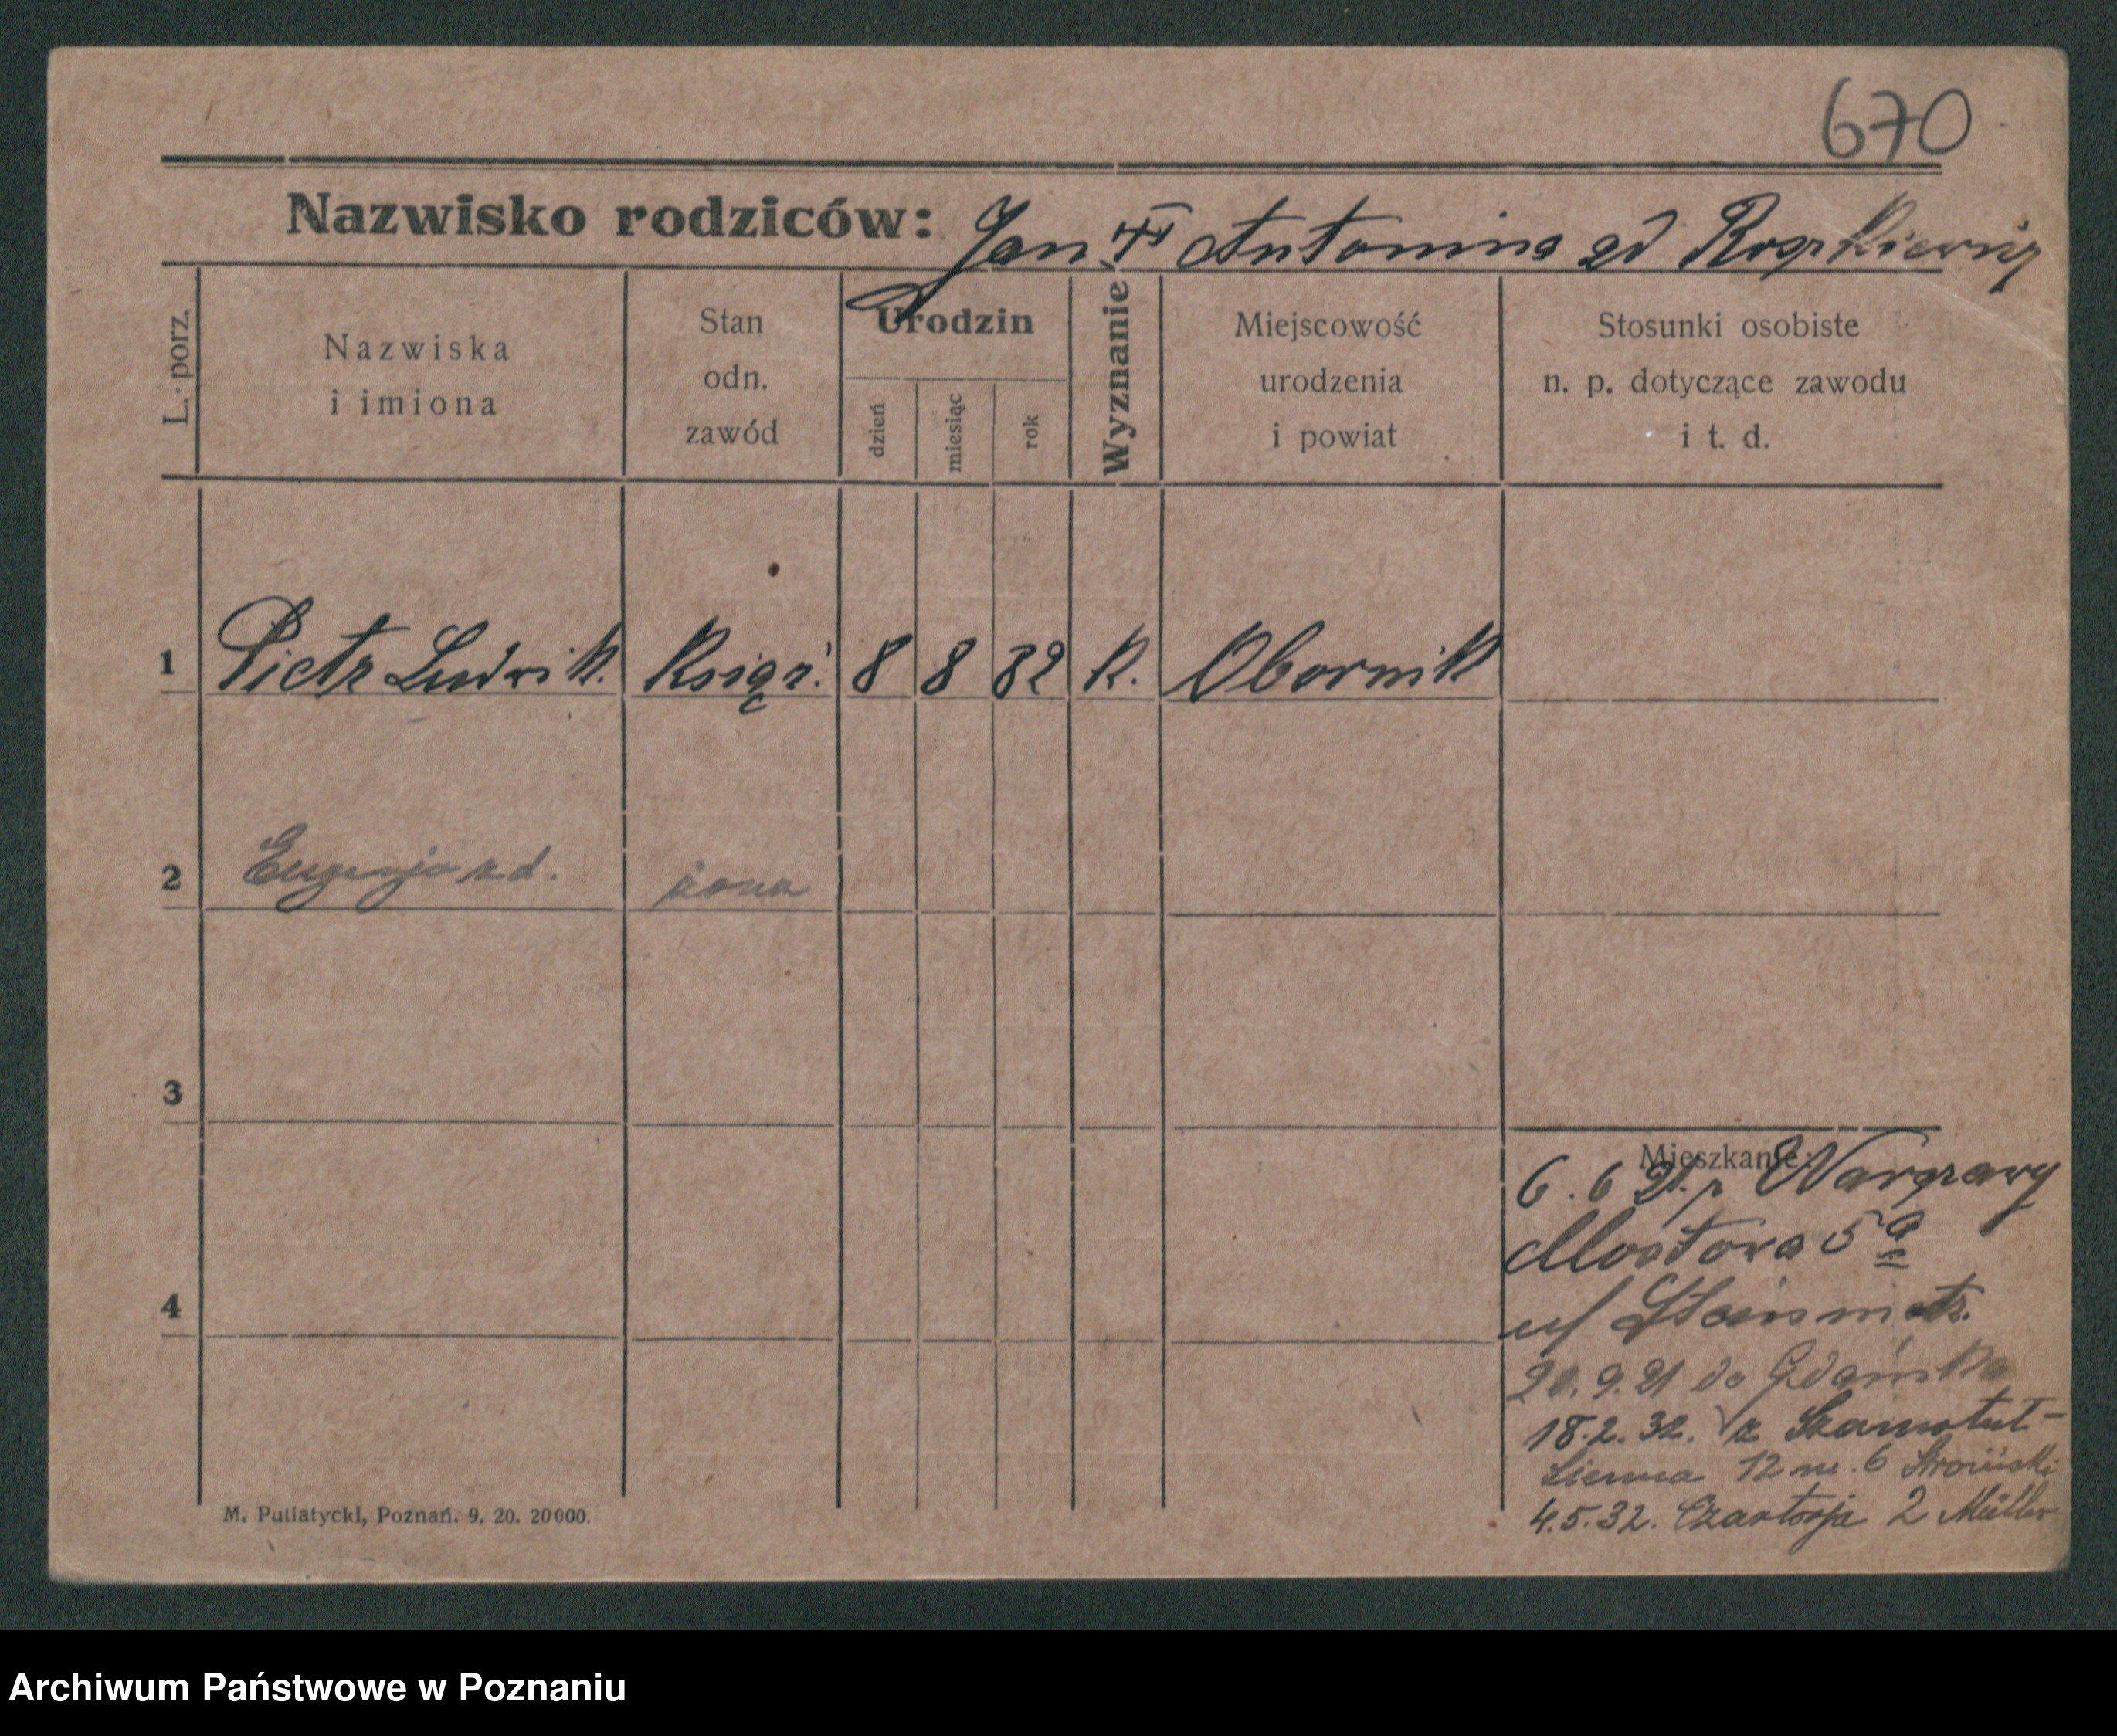 670
Nazwisko rodziców: Jan Antonina zd Roszkiewicz
L. porz.
Nazwiska
i imiona
Stan
odn.
zawód
Urodzin
dzień
miesiąc
rok
Wyznanie
Miejscowość
urodzenia
i powiat
Stosunki osobiste
n. p. dotyczące zawodu
i t. d.
1 Piotr Ludwik. Księż. 8 8 82 k. Obornik
2 Eugenja zd. żona
3
Mieszkanie:
6.6 21. z Warszawy
Mostowa 5 a
4
u/
20.9.21 do Gdańska
18.2.32. z Szamotuł-
12 m. 6
4.5.32. Czartorja 2 Müller
M. Putiatycki, Poznań. 9. 20. 20000.
Archiwum Państwowe w Poznaniu